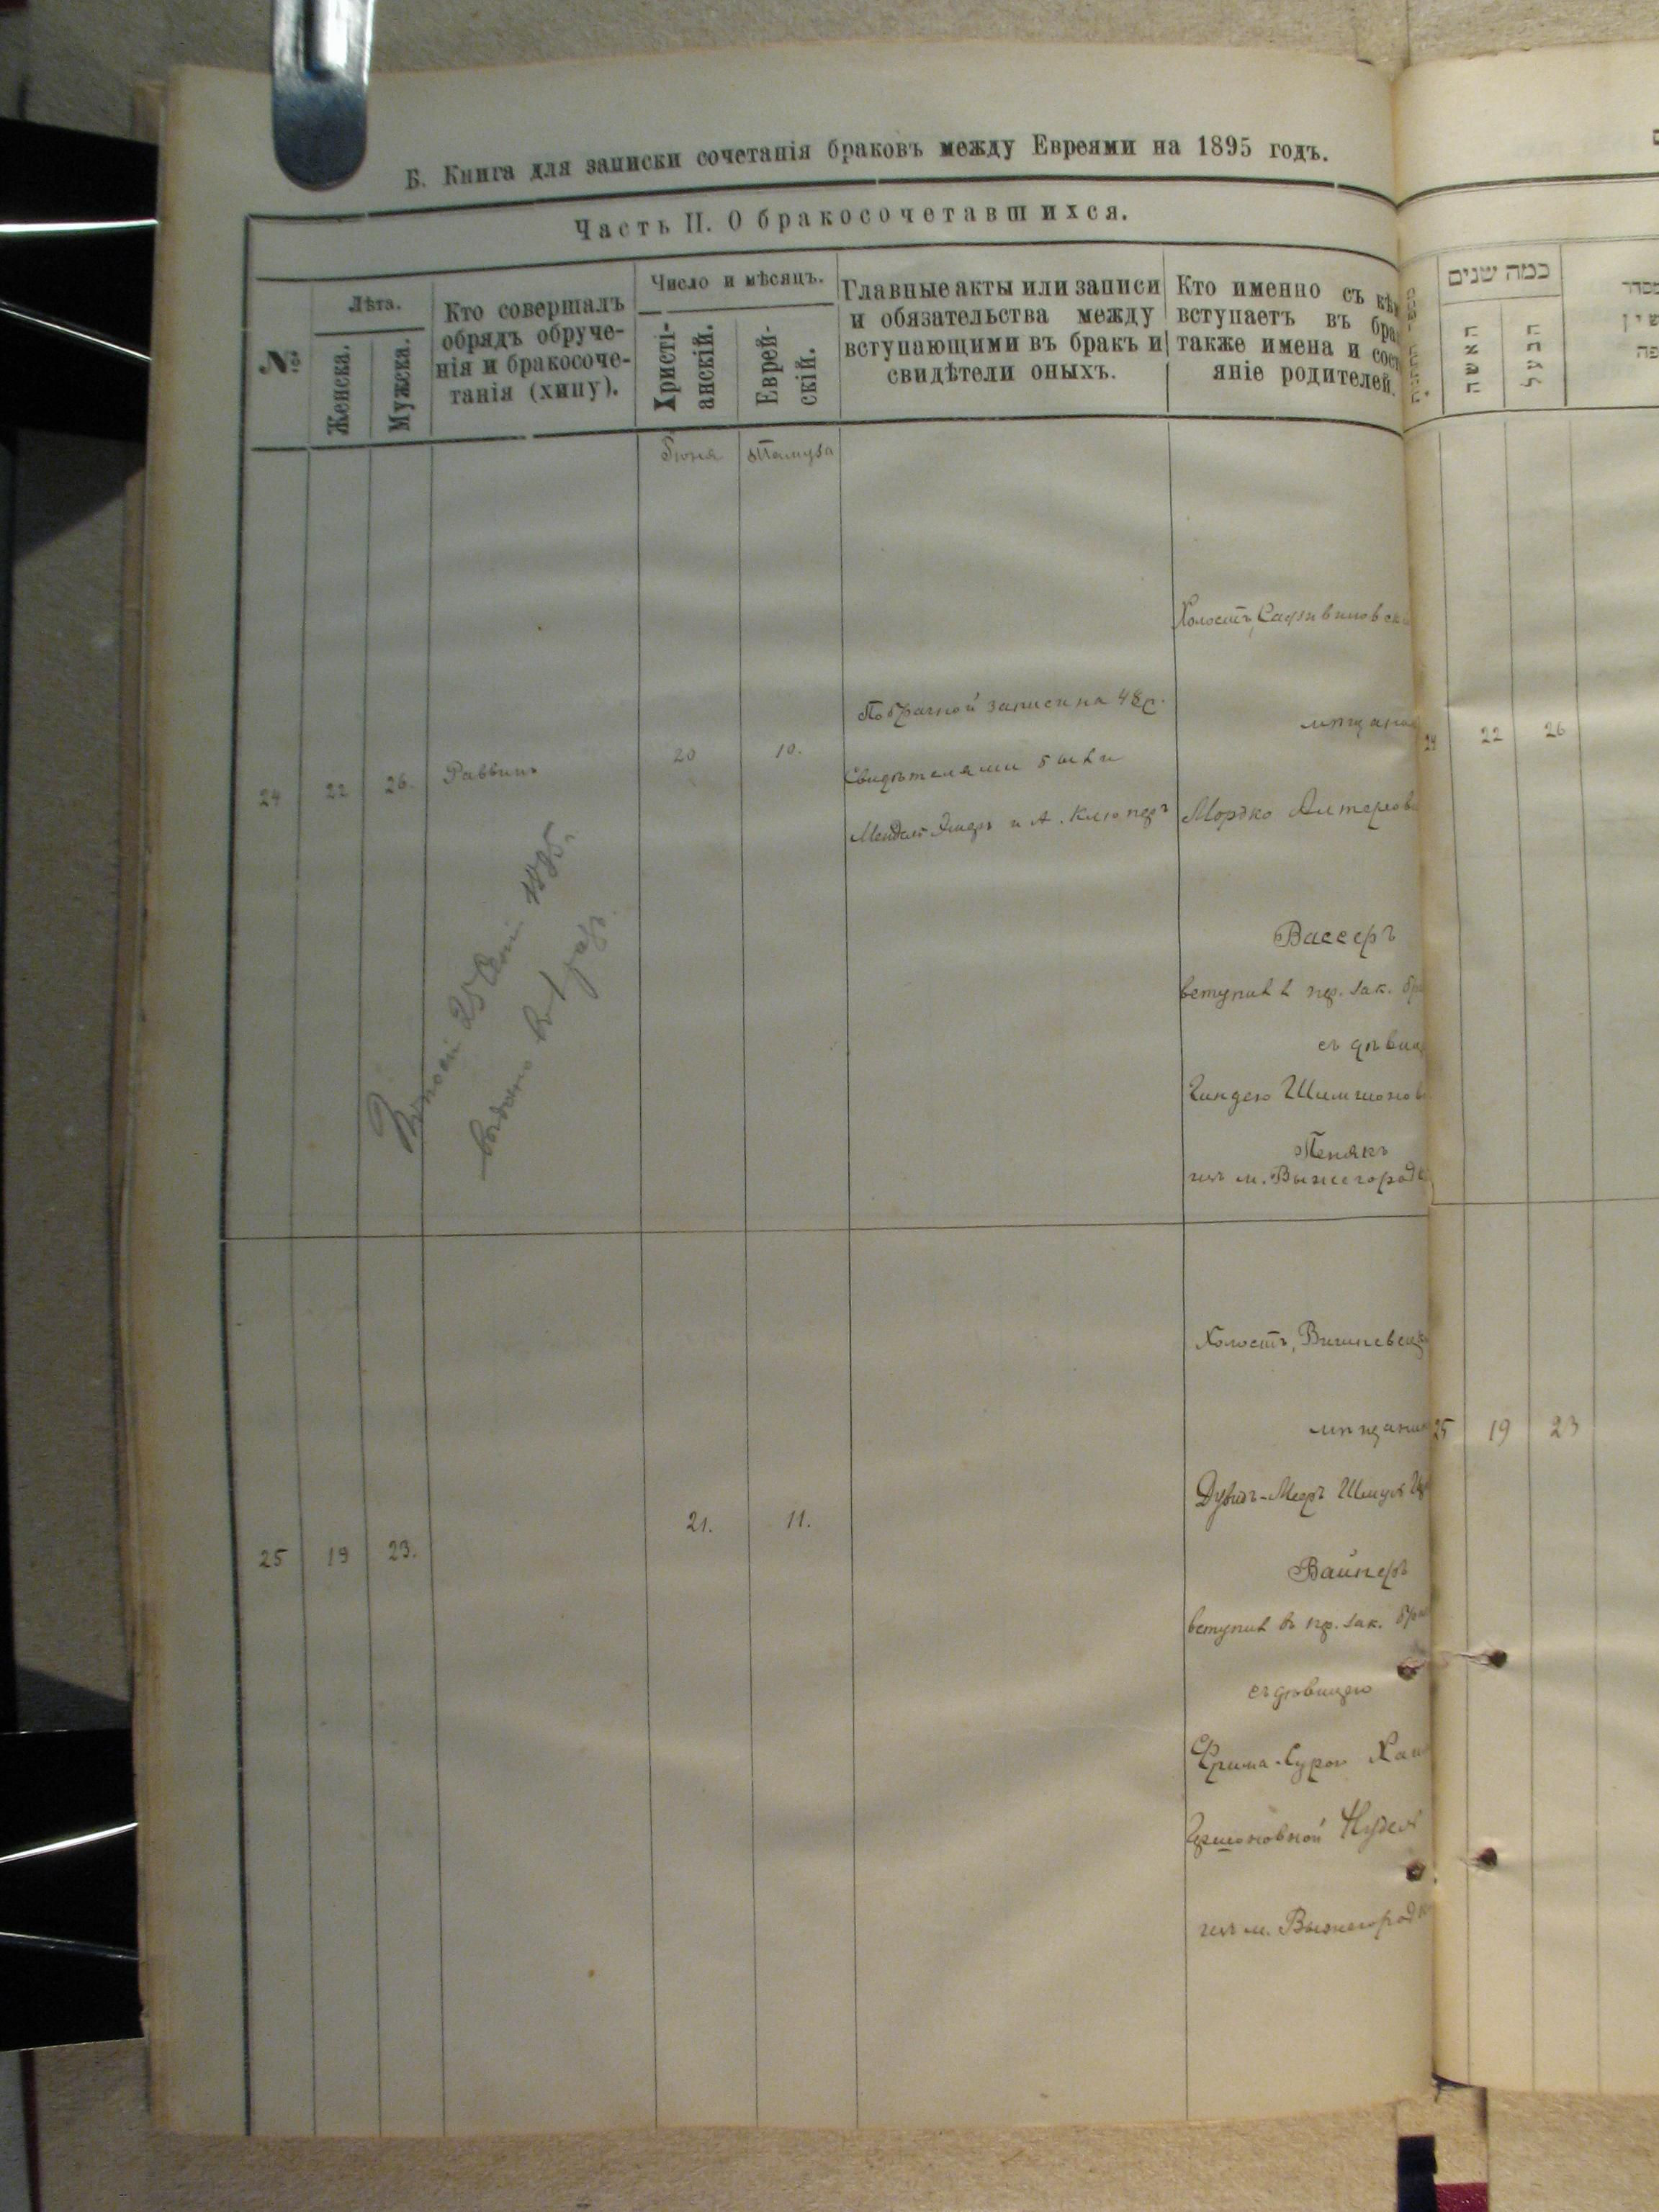 Б. Книга для записки сочетанія браковъ между Евреями на 1895 годъ.
Часть II. О бракосочетавшихся.
№
Лѣта.
Женска.
Мужска.
Кто совершалъ
обрядъ обруче-
нія и бракосоче-
танія (хипу).
Число и мѣсяцъ.
Христі-
анскій.
Еврей-
скій.
Главные акты или записи
и обязательства между
вступающими въ бракъ и
свидѣтели оныхъ.
Кто именно съ кѣ
вступаетъ въ бра
также имена и сос
яніе родителей.
כמה שנים
האשה
הבעל
Іюня
Тамуза
24
22
26.
Раввинъ
20
10.
По брачной записи на 48 р.
Свидѣтелями были
Мендель и А. Клюперъ
Холостъ,
мѣщани
Мордко Алтеров
Вассеръ
вступилъ в пер. зак. бра
съ дѣвиц
Гиндею Шимшонов
Пенякъ
изъ м. Вышегородк
24
22
26
25
19
23.
21.
11.
Холостъ, Вишневецк
мѣщанин
Дувидъ-Мееръ Шмуль
Вайнеръ
вступилъ въ пер. зак. бра
съ дѣвицею
Фрима-Сурою Хаи
Гершоновной Нудель
изъ м. Вышегородк
25
19
23